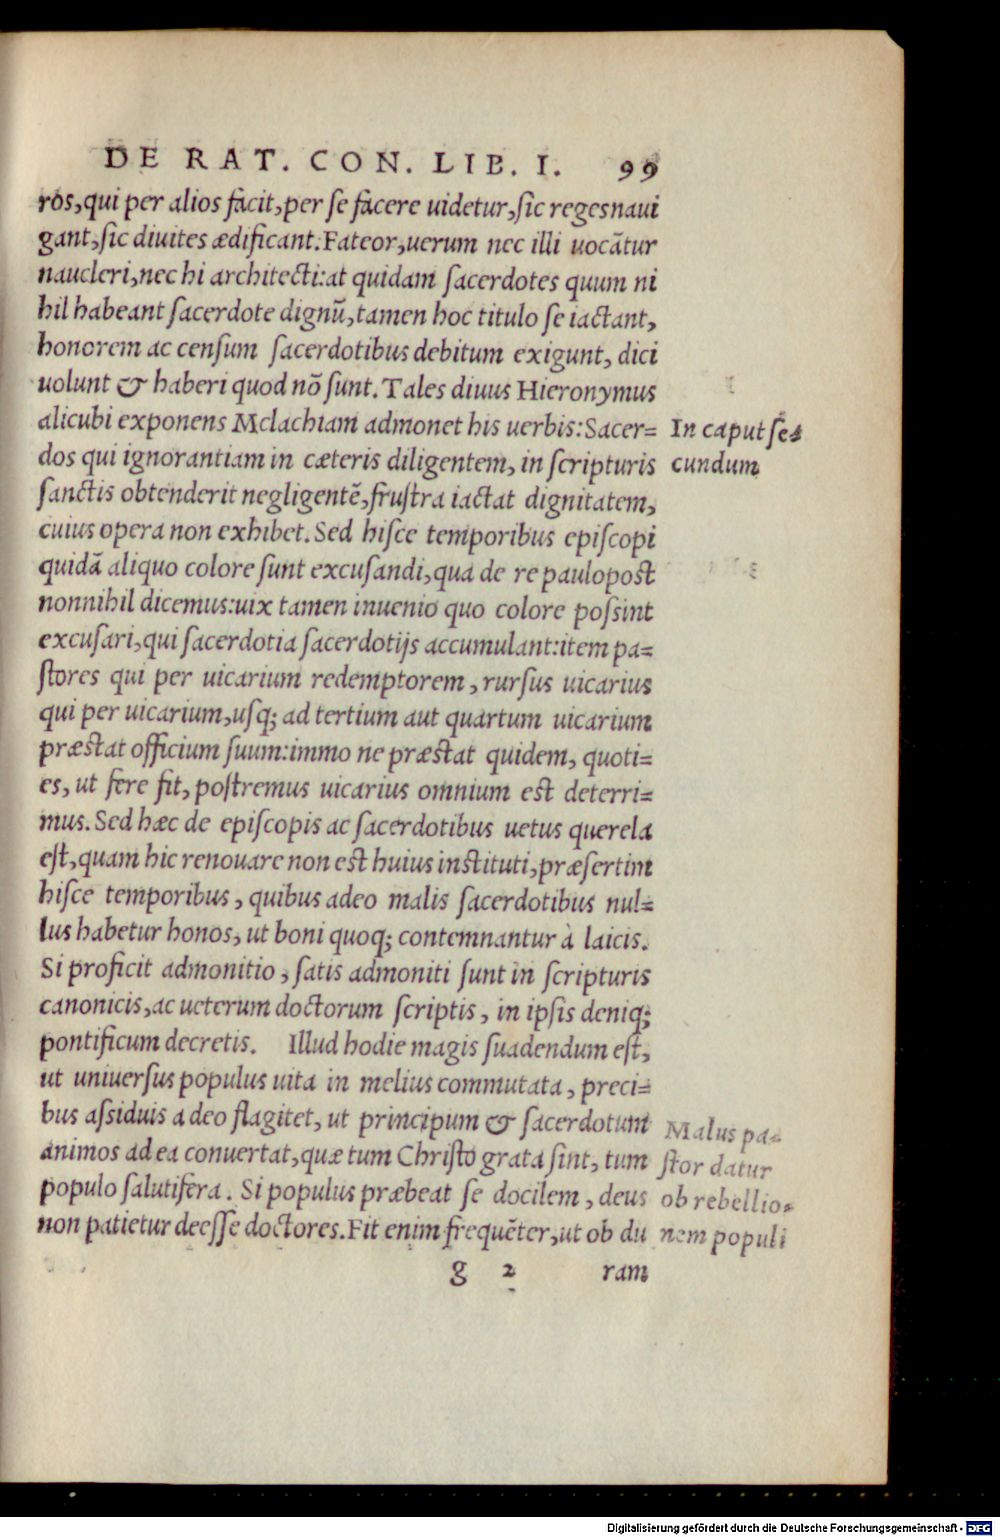 DE RAT. CON. LIB. I. 99
ros,qui per alios facit,per se facere uidetur,sic reges naui
gant,sic diuites ædificant.Fateor,uerum nec illi uocātur
naucleri,nec hi architecti:at quidam sacerdotes quum ni
hil habeant sacerdote dignū,tamen hoc titulo se iactant,
honorem ac censum sacerdotibus debitum exigunt, dici
uolunt & haberi quod nō sunt. Tales diuus Hieronymus
alicubi exponens Mclachiam admonet his uerbis:Sacer=
dos qui ignorantiam in cæteris diligentem, in scripturis
sanctis obtenderit negligentē,frustra iactat dignitatem,
cuius opera non exhibet. Sed hisce temporibus episcopi
quidā aliquo colore sunt excusandi,qua de re paulopost
nonnihil dicemus:uix tamen inuenio quo colore possint
excusari,qui sacerdotia sacerdotijs accumulant:item pa=
stores qui per uicarium redemptorem, rursus uicarius
qui per uicarium,usq; ad tertium aut quartum uicarium
præstat officium suum:immo ne præstat quidem, quoti=
es, ut fere fit, postremus uicarius omnium est deterri=
mus. Sed hæc de episcopis ac sacerdotibus uetus querela
est,quam hic renouare non est huius instituti,præsertim
hisce temporibus, quibus adeo malis sacerdotibus nul=
lus habetur honos, ut boni quoq; contemnantur à laicis.
Si proficit admonitio, satis admoniti sunt in scripturis
canonicis,ac ueterum doctorum scriptis, in ipsis deniq;
pontificum decretis. Illud hodie magis suadendum est,
ut uniuersus populus uita in melius commutata, preci=
bus assiduis adeo flagitet, ut principum & sacerdotum
animos ad ea conuertat,quæ tum Christo grata sint, tum
populo salutifera. Si populus præbeat se docilem, deus
non patietur deesse doctores.Fit enim frequēter,ut ob du
g 2 ram
In caput se=
cundum
Malus pa=
stor datur
ob rebellio=
nem populi
Digitalisierung gefördert durch die Deutsche Forschungsgemeinschaft - DFG